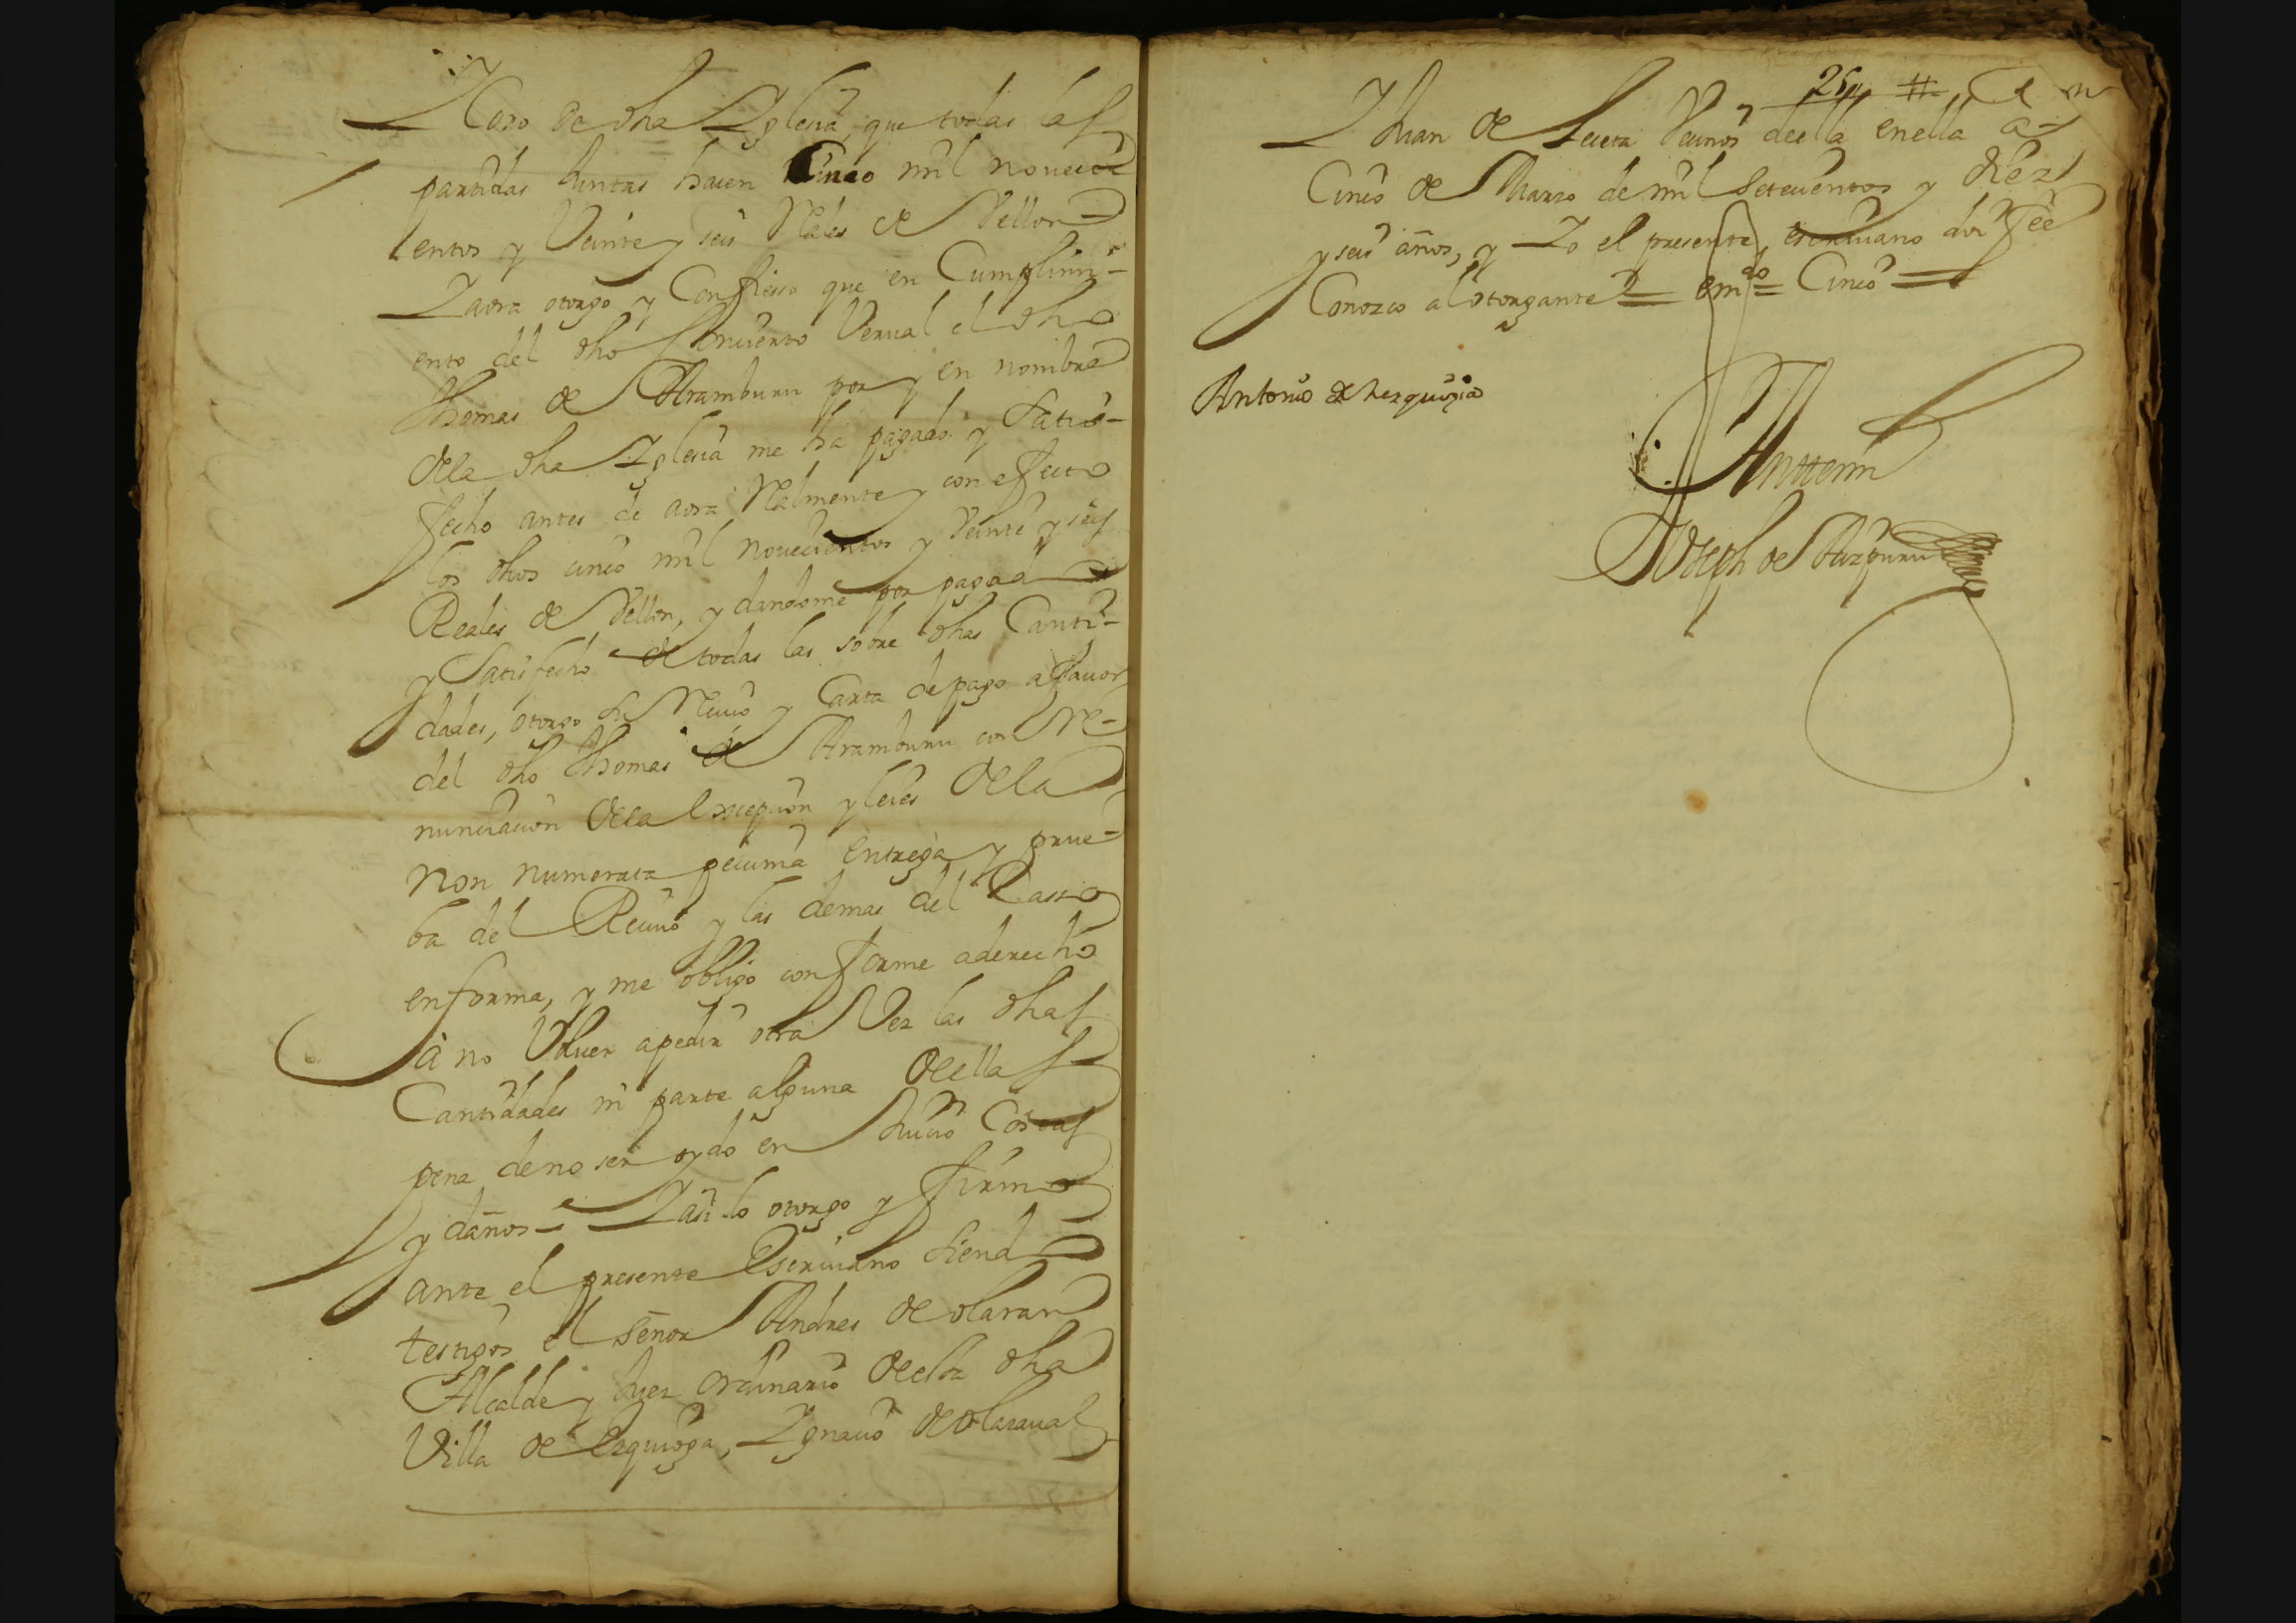 Y Coro de dha Yglesia, que todas las
partidas Juntas hacen Cinco mil noveci-
entos y Veinte y seis Rales de Vellon =
Y aora otorgo y Confiesso que en Cumplimi-
ento del dho Conuenio Verual el dho
Thomas de Aramburu por y en nombre
de la dha Yglesia me ha pagado y Satis-
fecho antes de aora Realmente y con efecto
los dhos cinco mil novecientos y Veinte y seis
Reales de Vellon, y dandome por pagado
y Satisfecho de todas las sobre dhas Canti-
dades, otorgo de Reciuo y Carta de pago a fauor
del dho Thomas de Aramburu con re-
nunciacion de la excepcion y leies de la
non numerata pecunia entrega y prue-
ba del Reciuo y las demas del Casso
en forma, y me obligo conforme a derecho
a no Voluer a pedir otra Vez las dhas
Cantidades ni parte alguna de ellas
pena de no ser oydo en Juicio Costas
y daños = Y asi lo otorgo y firmo
ante el presente Escriuano Siendo
testigos el señor Andres de olaran
Alcalde y Juez ordinario de esta dha
Villa de Ezquioga, Ygnacio de olaraual
Y Juan de Vecinos de ella en ella a
Cinco de Marzo de mil Setecientos y diez
y seis años, y Yo el presente escriuano doi fee
Conozco al otorgante = em.do = Cinco =
Antonio de hezquioga
Ante mi
Joseph de Aizpuru